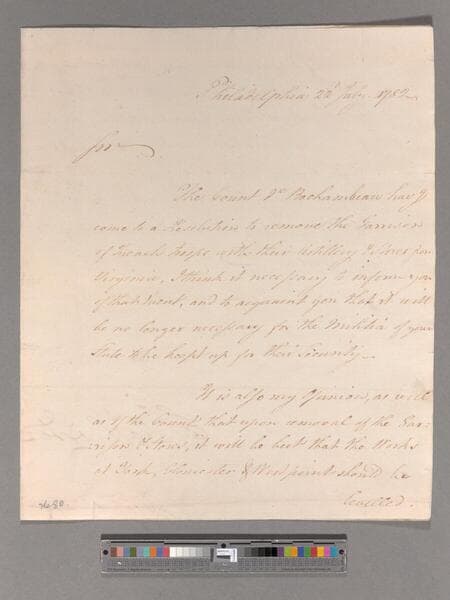 Philadelphia 22d July 1782
Sir
The Count de Rochambeau havg
come to a Resolution to remove the Garrison
of French Troops with their Artillery & Stores from
Virginia, I think it necessary to inform you
of that Event, and to acquaint you that it will
be no longer necessary for the Militia of your
State to be keept up for their Security.
It is also my Opinion, as well
as of the Count that upon removal of the Gar-
rison & Stores, it will be best that the Works
at York, Gloucester & Westpoint should be
levelled.